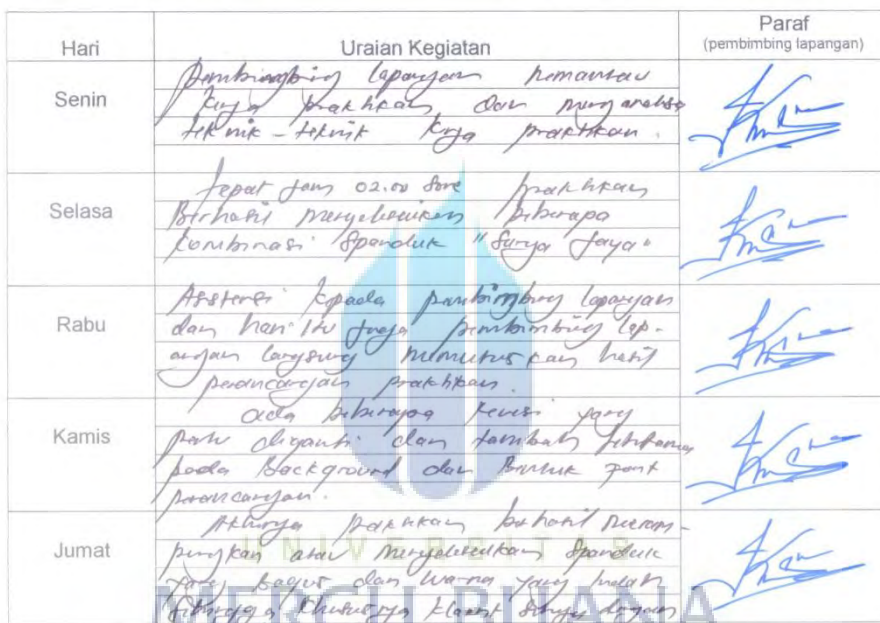 Hari Uraian Kegiatan Paraf
(pembimbing lapangan)
Senin
Pembimbing lapangan memantau
kerja praktikan dan menganalisa
teknik-teknik kerja praktikan.
Selasa
Tepat jam 02.00 sore praktikan
Berhasil menyelesaikan beberapa
kombinasi Spanduk "Surya Jaya"
Rabu
Asistensi kepada pembimbing lapangan
dan hari itu juga pembimbing lap-
angan langsung memutuskan hasil
perancangan praktikan.
Kamis
Ada beberapa revisi yang
perlu diganti dan tambah terutama
pada Background dan Bentuk font
perancangan.
Jumat
Akhirnya praktikan berhasil meram-
pungkan atau menyelesaikan Spanduk
yang bagus dan warna yang indah
Sehingga khususnya klient
UNIVERSITAS
MERCU BUANA